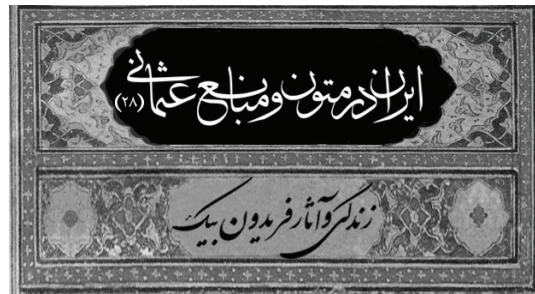 ایران در متون و منابع عثمانی (۲۸)
زندگی و آثار فریدون بیک